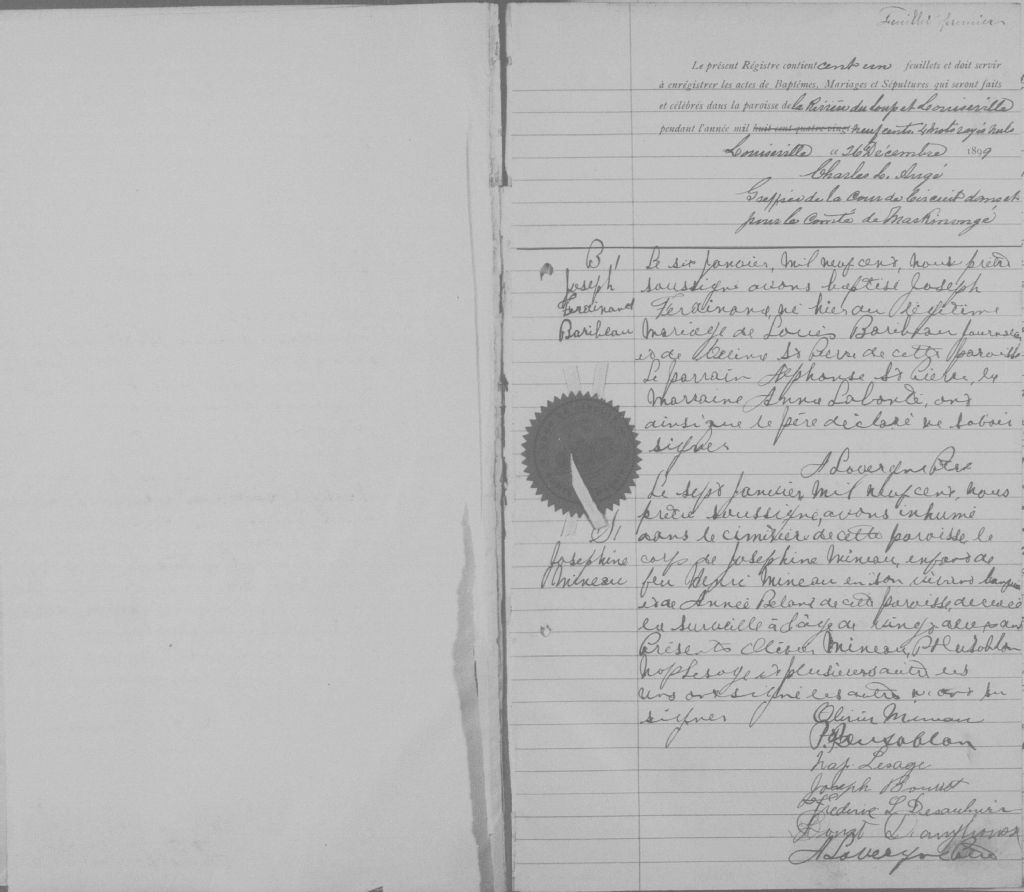 Feuillet premier
Le présent Régistre contient cent un feuillets et doit servir
à enrégistrer les actes de Baptêmes, Mariages et Sépultures qui seront faits
et célébrés dans la paroisse de la Rivière du loup et Louiseville
pendant l'année mil huit cent quatre-vingt neuf cent. 4 mots rayés nuls
Louiseville ce 26 Décembre 1899
Charles L. Augé
Greffier de la Cour de Circuit dans et
pour le Comté de Maskinongé
B 1
Joseph
Ferdinand
Baribeau
Le six janvier, mil neuf cent, nous prêtre
soussigné avons baptisé Joseph
Ferdinand, né hier du légitime
mariage de Louis Baribeau journalier
et de St Pierre de cette paroisse
Le parrain Alphonse St Pierre, la
marraine Anna Labonté, ont
ainsi que le père déclaré ne savoir
signer
Le sept janvier mil neuf cent, nous
prêtre soussigné, avons inhumé
dans le cimetière de cette paroisse, le
Josephine
Mineau
corps de Josephine Mineau, enfant de
feu Henri Mineau en son vivant
et de Annie Beland de cette paroisse, décédée
la surveille à l'âge de vingt deux ans
Présents Olivier Mineau,
Nap Lesage et plusieurs autres les
uns ont signé les autres n'ont su
signer
Olivier Mineau
Nap. Lesage
Joseph
Frederic L. Desaulniers
Donat